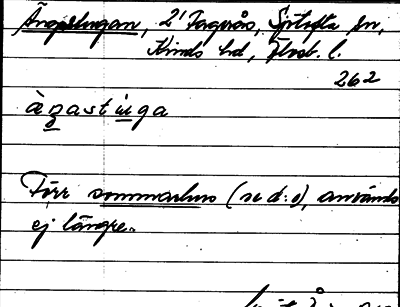 Ängastugan, 2' Fagerås, Sjötofta sn,
Kinds hd, Älvsb. l.
262
àgastùga
Förr sommarhus (se d:o), används
ej längre.